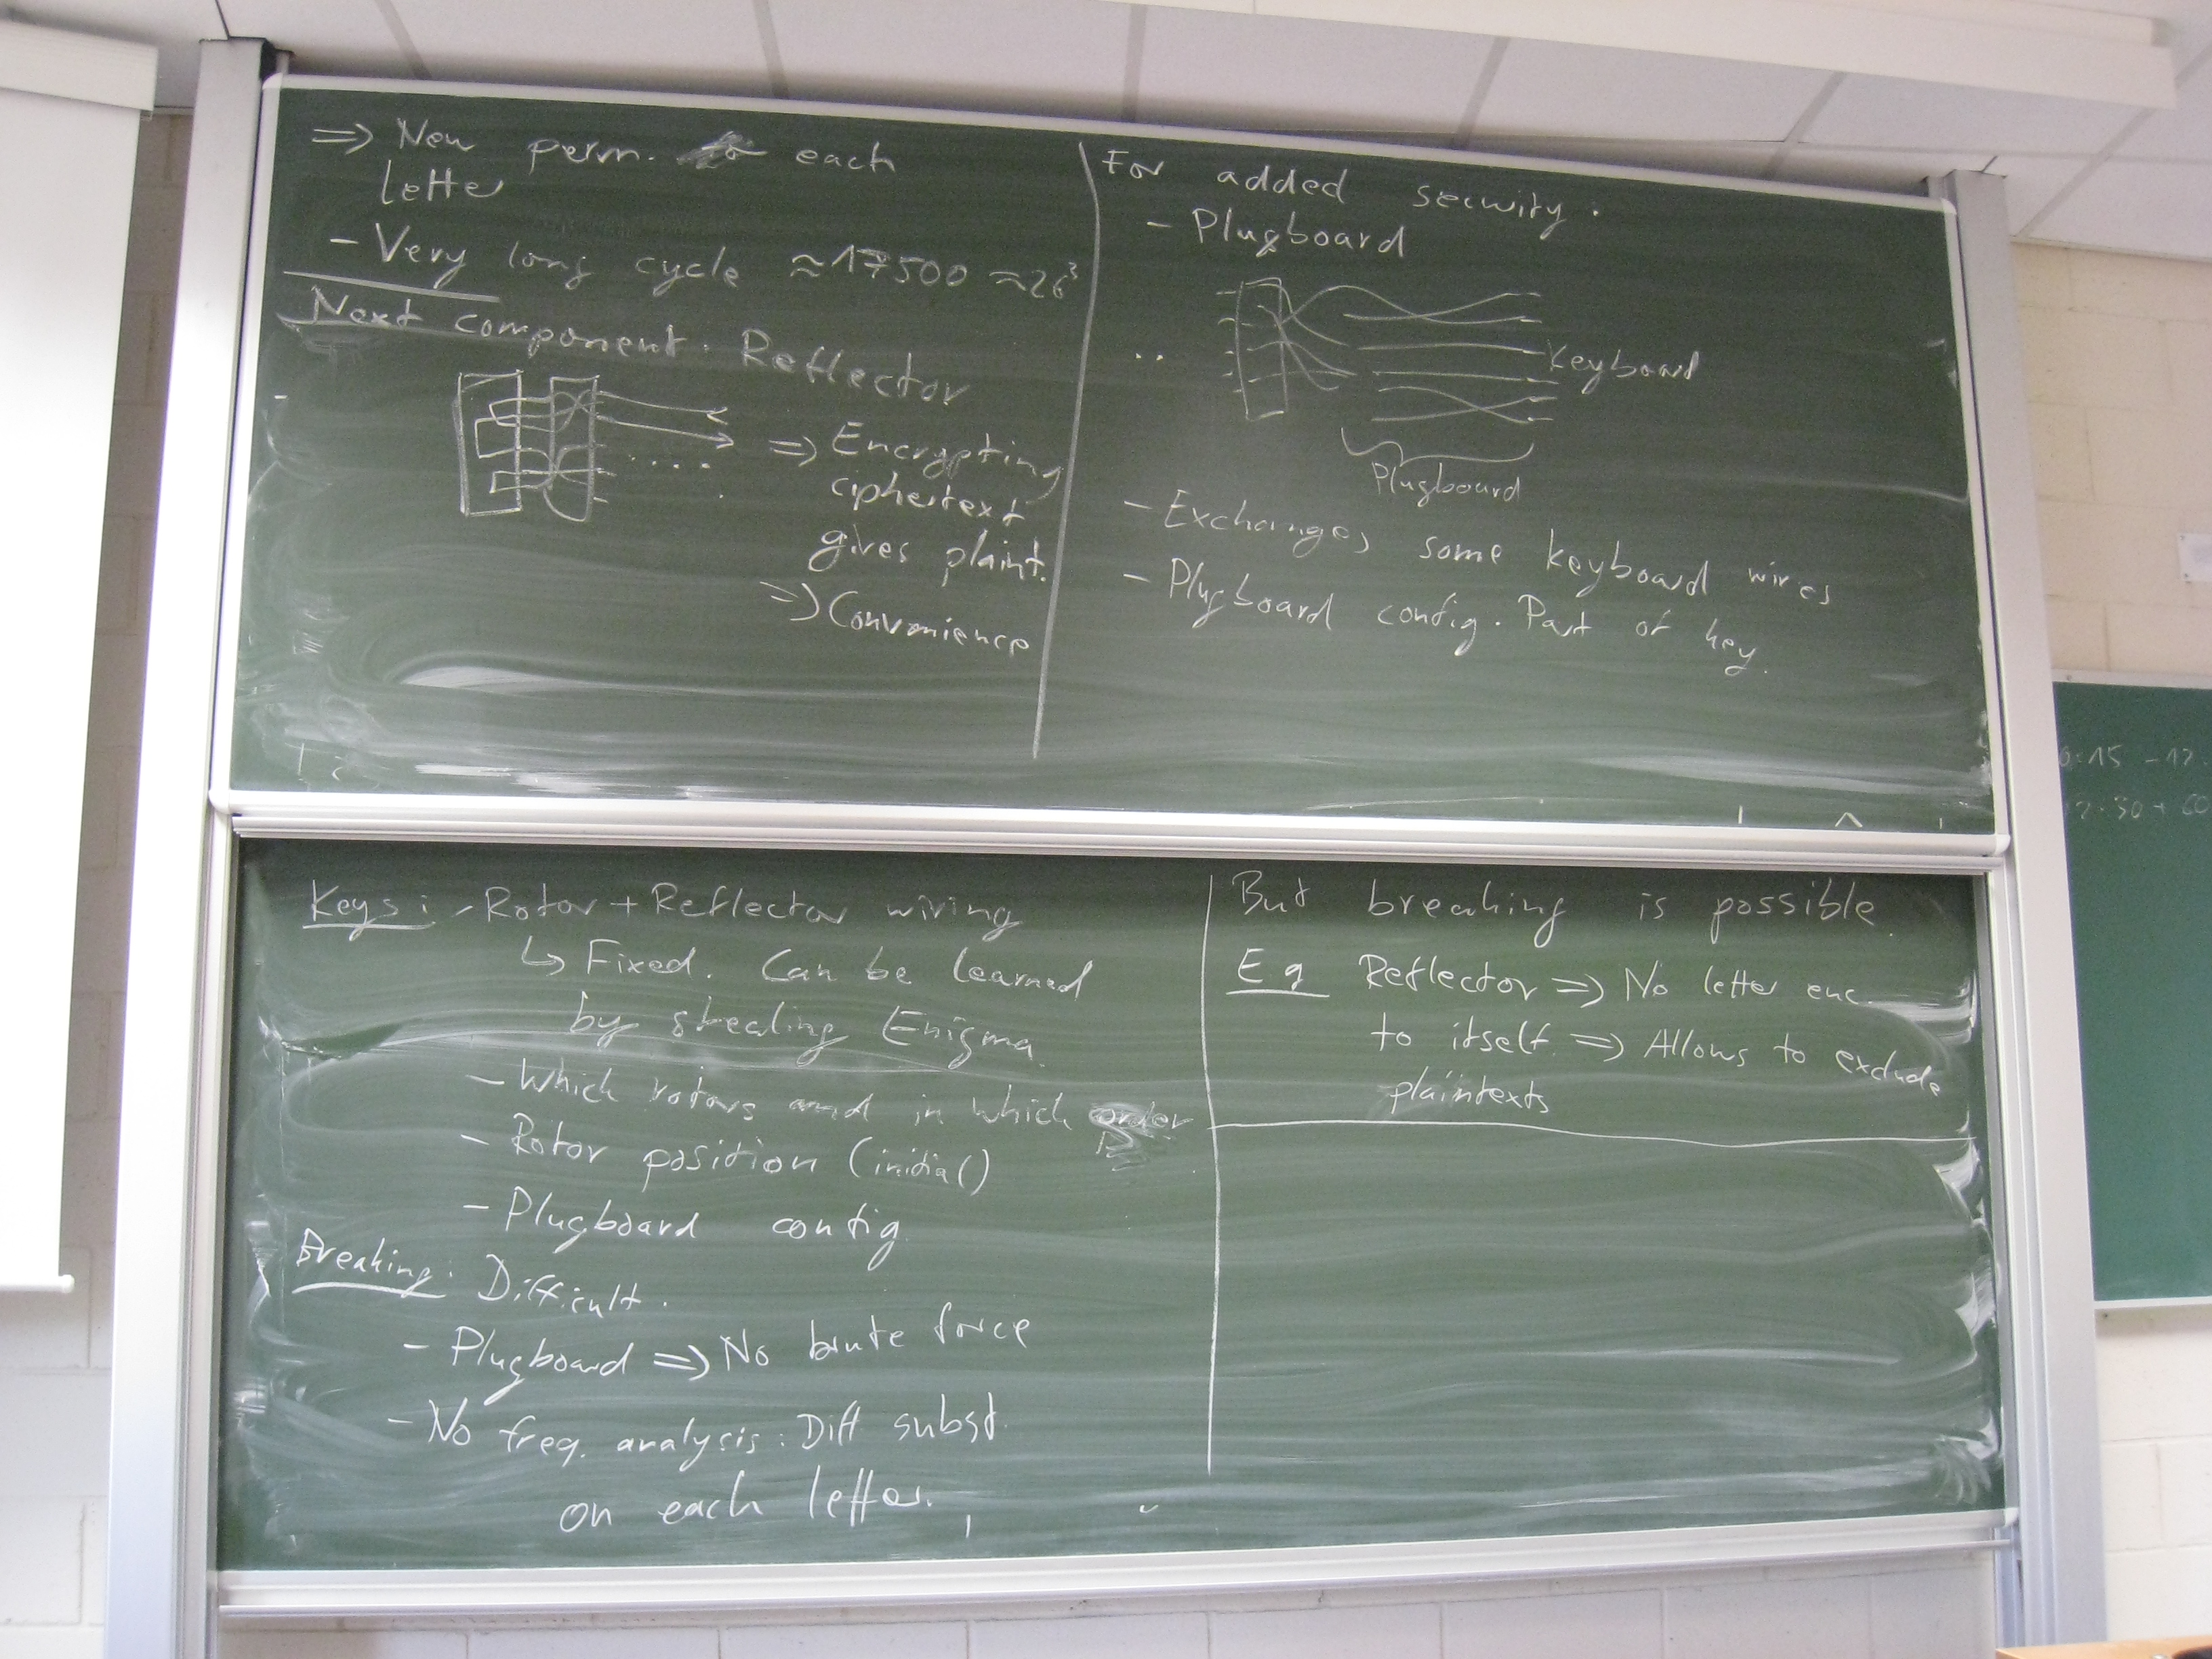 ⇒ New perm. each
letter
- Very long cycle ≈17500 ≈26³
Next component: Reflector
⇒ Encrypting
ciphertext
gives plaint.
⇒ Convenience
For added security:
- Plugboard
..
Keyboard
Plugboard
- Exchanges some keyboard wires
- Plugboard config. Part of key.
Keys: - Rotor + Reflector wiring
↳ Fixed. Can be learned
by stealing Enigma.
- Which rotors and in which order
- Rotor position (initial)
- Plugboard config.
Breaking: Difficult.
- Plugboard ⇒ No brute force
- No freq. analysis: Diff subst.
on each letter.
But breaking is possible.
Eg Reflector ⇒ No letter enc.
to itself. ⇒ Allows to exclude
plaintexts
:15 - 12
2:30 +